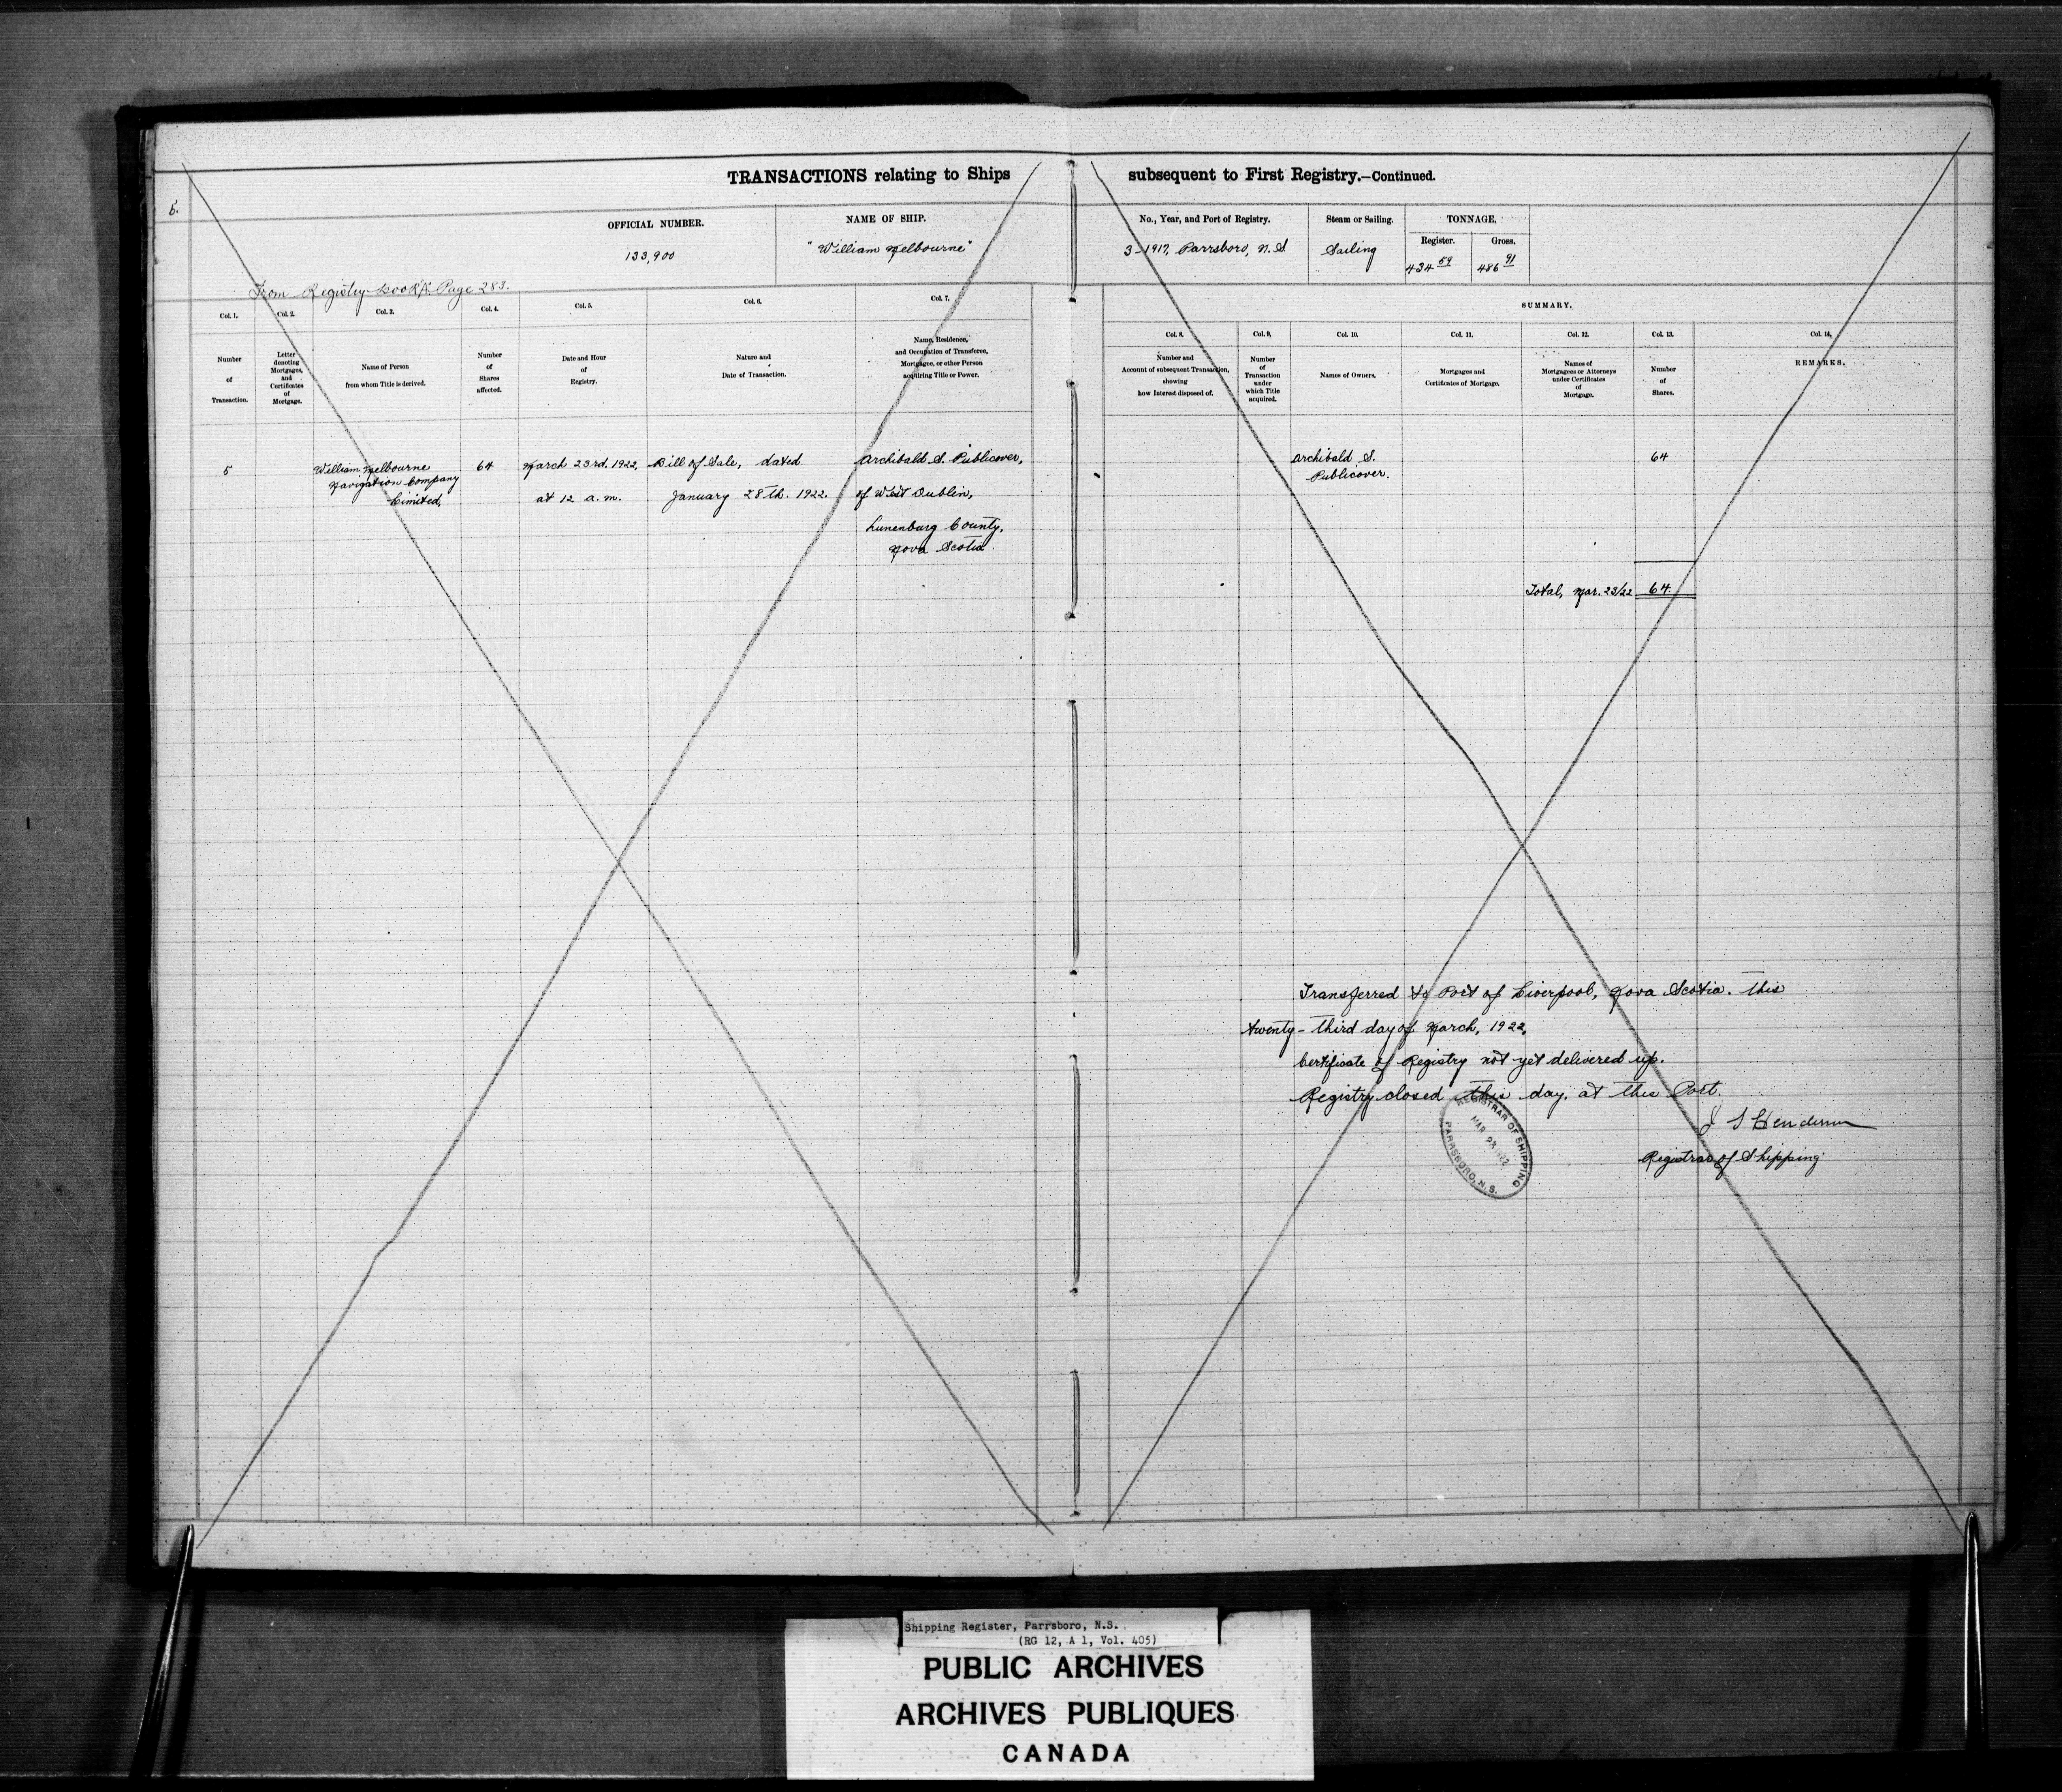 TRANSACTIONS relating to Ships subsequent to First Registry.—Continued.
5.
OFFICIAL NUMBER.
133,900
NAME OF SHIP.
"William Melbourne"
No., Year, and Port of Registry.
3-1917, Parrsboro, N.S
Steam or Sailing.
Sailing
TONNAGE.
Register.
434 59
Gross.
486 91
From Registry Book "A" Page 283.
SUMMARY.
Col. 1.
Number
of
Transaction.
Col. 2.
Letter
denoting
Mortgages,
and
Certificates
of
Mortgage.
Col. 3.
Name of Person
from whom Title is derived.
Col. 4.
Number
of
Shares
affected.
Col. 5.
Date and Hour
of
Registry.
Col. 6.
Nature and
Date of Transaction.
Col. 7.
Name, Residence,
and Occupation of Transferee,
Mortgagee, or other Person
acquiring Title or Power.
Col. 8.
Number and
Account of subsequent Transaction,
showing
how Interest disposed of.
Col. 9.
Number
of
Transaction
under
which Title
acquired.
Col. 10.
Names of Owners.
Col. 11.
Mortgages and
Certificates of Mortgage.
Col. 12.
Names of
Mortgagees or Attorneys
under Certificates
of
Mortgage.
Col. 13.
Number
of
Shares.
Col. 14.
REMARKS.
5
William Melbourne
Navigation Company
Limited,
64
March 23rd. 1922,
at 12 a.m.
Bill of Sale, dated
January 28th. 1922.
Archibald S. Publicover,
of West Dublin,
Lunenburg County,
Nova Scotia.
Archibald S.
Publicover.
64
Total, Mar. 23/22 64
Transferred to Port of Liverpool, Nova Scotia. this
twenty-third day of March, 1922,
Certificate of Registry not yet delivered up.
Registry closed this day, at this Port.
J S Henderson
Registrar of Shipping
REGISTRAR OF SHIPPING
MAR 23 1922
PARRSBORO, N.S.
Shipping Register, Parrsboro, N.S.
(RG 12, A 1, Vol. 405)
PUBLIC ARCHIVES
ARCHIVES PUBLIQUES
CANADA